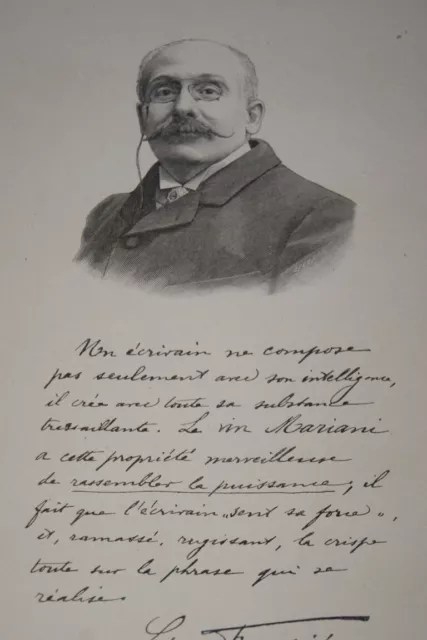 Un écrivain ne compose
pas seulement avec son intelligence,
il crée avec toute sa substance
tressaillante. Le vin Mariani
a cette propriété merveilleuse
de rassembler la puissance ; il
fait que l'écrivain „sent sa force",
et, ramassé, rugissant, la crispe
toute sur la phrase qui se
réalise.